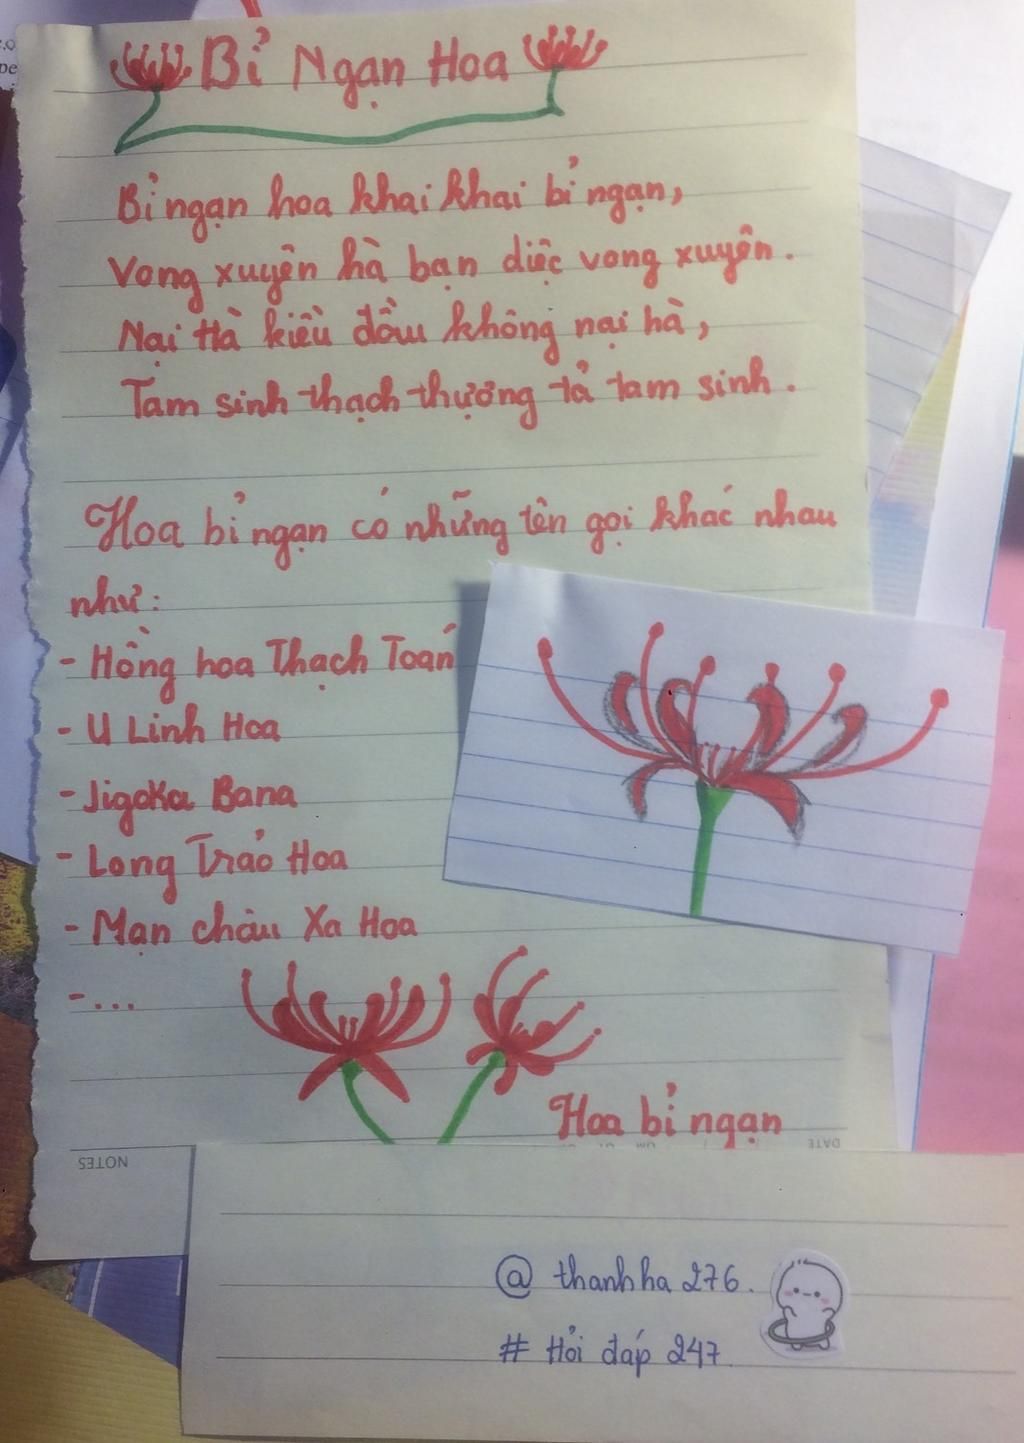 Bỉ Ngạn Hoa
Bỉ ngạn hoa khai khai bỉ ngạn,
Vong xuyên hà bạn diệc vong xuyên.
Nại Hà kiều đầu không nại hà,
Tam sinh thạch thượng tả tam sinh.
Hoa bỉ ngạn có những tên gọi khác nhau
như:
- Hồng hoa Thạch Toán
- U Linh Hoa
- Jigoka Bana
- Long Trảo Hoa
- Mạn châu Xa Hoa
- ...
Hoa bỉ ngạn
DATE
NOTES
@ thanhha 276.
# Hỏi đáp 247